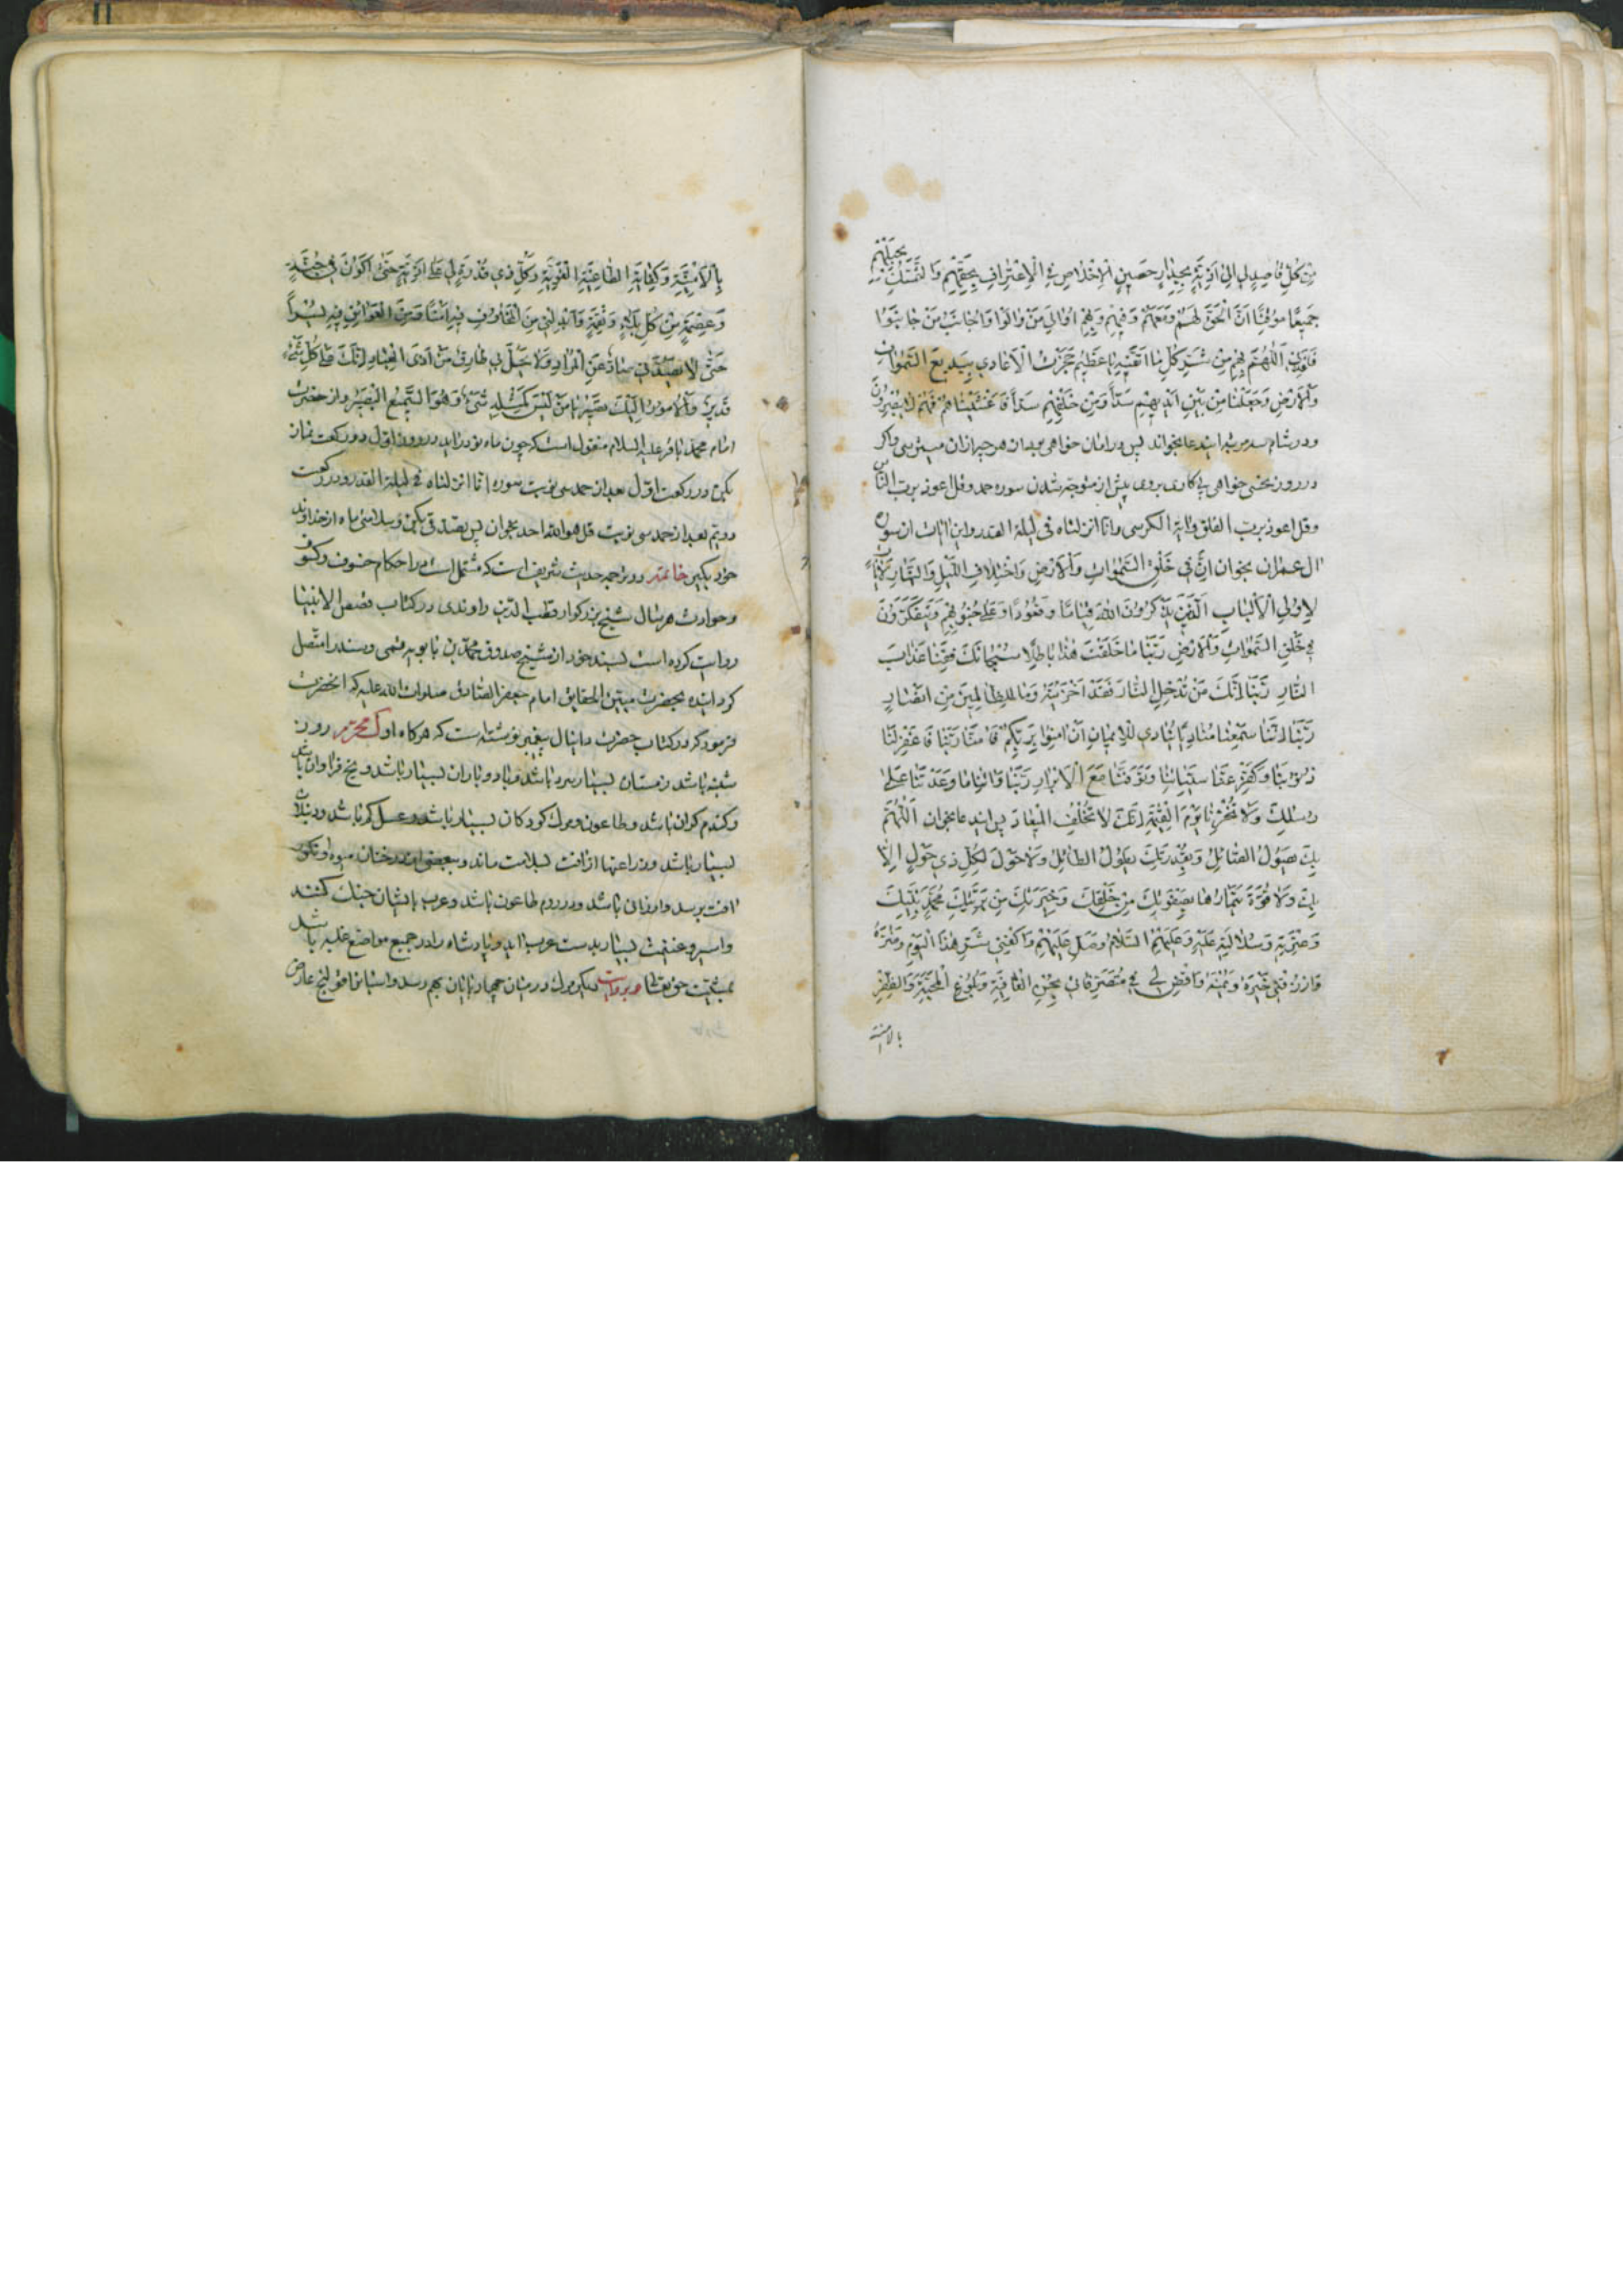 مِنْ كُلِّ قاصِدٍ لي اِلىٰ اَذِيَّةٍ بِجِدارٍ حَصينٍ اَلْاِخْلاصِ فِي الْاِعْتِرافِ بِحَقِّهِمْ وَالتَّمَسُّكِ بِحَبْلِهِمْ
جَميعًا موُقِنًا اَنَّ الْحَقَّ لَهُمْ وَمَعَهُمْ وَفيهِمْ وَبِهِمْ اُوالي مَنْ والَوْا وَاُجانِبُ مَنْ جانَبُوا
فَاَعِذْني اَللّٰهُمَّ بِهِمْ مِنْ شَرِّ كُلِّ ما اَتَّقيهِ يا عَظيمُ حَجَزْتُ الْاَعادي بِبَديعِ السَّمٰواتِ
وَالْاَرْضِ وَجَعَلْنا مِنْ بَيْنِ اَيْديهِمْ سَدًّا وَمِنْ خَلْفِهِمْ سَدًّا فَاَغْشَيْناهُمْ فَهُمْ لا يُبْصِرُونَ
ودر شام سه مرتبه ایندعا بخواند پس در امان خواهی بود از هر چه از آن میترسی و اگر
در روز نحسی خواهی پی کاری بروی پیش از متوجه شدن سوره حمد وقل اعوذ برب الناس
وقل اعوذ برب الفلق وآیة الکرسی وانا انزلناه فی لیلة القدر و این آیات از سوره
آل عمران بخوان اِنَّ في خَلْقِ السَّمٰواتِ وَالْاَرْضِ وَاخْتِلافِ اللَّيْلِ وَالنَّهارِ لَآياتٍ
لِاُولِي الْاَلْبابِ اَلَّذينَ يَذْكُرُونَ اللهَ قِيامًا وَقُعُودًا وَعَلىٰ جُنُوبِهِمْ وَيَتَفَكَّرُونَ
في خَلْقِ السَّمٰواتِ وَالْاَرْضِ رَبَّنا ما خَلَقْتَ هٰذا باطِلًا سُبْحانَكَ فَقِنا عَذابَ
النّارِ رَبَّنا اِنَّكَ مَنْ تُدْخِلِ النّارَ فَقَدْ اَخْزَيْتَهُ وَما لِلظّالِمينَ مِنْ اَنْصارٍ
رَبَّنا اِنَّنا سَمِعْنا مُنادِيًا يُنادي لِلْايمانِ اَنْ اٰمِنُوا بِرَبِّكُمْ فَاٰمَنّا رَبَّنا فَاغْفِرْ لَنا
ذُنُوبَنا وَكَفِّرْ عَنّا سَيِّئاتِنا وَتَوَفَّنا مَعَ الْاَبْرارِ رَبَّنا وَاٰتِنا ما وَعَدْتَنا عَلىٰ
رُسُلِكَ وَلا تُخْزِنا يَوْمَ الْقِيٰمَةِ اِنَّكَ لا تُخْلِفُ الْميعادَ پس ایندعا بخوان اَللّٰهُمَّ
بِكَ يَصُولُ الصّائِلُ وَبِقُدْرَتِكَ يَطُولُ الطّائِلُ وَلا حَوْلَ لِكُلِّ ذي حَوْلٍ اِلّا
بِكَ وَلا قُوَّةَ يَمْتارُها بِصَفْوَتِكَ مِنْ خَلْقِكَ وَخِيَرَتِكَ مِنْ بَرِيَّتِكَ مُحَمَّدٍ نَبِيِّكَ
وَعِتْرَتِهِ وَسُلالَتِهِ عَلَيْهِ وَعَلَيْهِمُ السَّلامُ وَصَلِّ عَلَيْهِمْ وَاكْفِني شَرَّ هٰذَا الْيَوْمِ وَضَرَّهُ
وَارْزُقْني خَيْرَهُ وَيُمْنَهُ وَاقْضِ لي في مُتَصَرَّفاتي بِحُسْنِ الْعافِيَةِ وَبُلُوغِ الْمَحَبَّةِ وَالظَّفَرِ
بالامنیة
بِالْاُمْنِيَّةِ وَكِفايَةِ الطّاغِيَةِ الْمُغْوِيَةِ وَكُلِّ ذي قُدْرَةٍ لي عَلىٰ اَذِيَّةٍ حَتّىٰ اَكُونَ في جُنَّةٍ
وَعِصْمَةٍ مِنْ كُلِّ بَلاءٍ وَنِقْمَةٍ وَاَبْدِلْني مِنَ الْمَخاوِفِ فيهِ اَمْنًا وَمِنَ الْعَوائِقِ فيهِ يُسْرًا
حَتّىٰ لا يَصُدَّني صادٌّ عَنِ الْمُرادِ وَلا يَحُلَّ بي طارِقٌ مِنْ اَذَى الْعِبادِ اِنَّكَ عَلىٰ كُلِّ شَيْءٍ
قَديرٌ وَالْاُمُورُ اِلَيْكَ تَصيرُ يا مَنْ لَيْسَ كَمِثْلِهِ شَيْءٌ وَهُوَ السَّميعُ الْبَصيرُ واز حضرت
امام محمد باقر علیه السلام منقول است که چون ماه نو درآید در روز اول دو رکعت نماز
بکن در رکعت اول بعد از حمد سی نوبت سوره انا انزلناه فی لیلة القدر ودر رکعت
دویم بعد از حمد سی نوبت قل هو الله احد بخوان پس تصدقی بکن وسلامتی ماه از خداوند
خود بگیر خاتمه در ترجمه حدیث شریف است که مشتمل است بر احکام خسوف وکسوف
وحوادث هر سال شیخ بزرگوار قطب الدین راوندی در کتاب قصص الانبیا
روایت کرده است بسند خود از شیخ صدوق محمد بن بابویه قمی وسند را متصل
گردانیده بحضرت مبین الحقایق امام جعفر الصادق صلوات الله علیه که آنحضرت
فرمود که در کتاب حضرت دانیال پیغمبر نوشته است که هرگاه اول محرم روز
شنبه باشد زمستان بسیار سرد باشد وباد وباران بسیار باشد ویخ فراوان باشد
وگندم گران باشد وطاعون ومرگ کودکان بسیار باشد وعسل کم باشد ودنبلان
بسیار باشد وزراعتها از آفت بسلامت ماند وببعضی از درختان میوه وانگور
آفت برسد وارزانی باشد ودر روم طاعون باشد وعرب با ایشان جنگ کنند
واسیر وغنیمت بسیار بدست عرب آید وپادشاه را در جمیع مواضع غلبه باشد
بمشیت حق تعالی وبروایت دیگر مرگ در میان چهارپایان بهم رسد واسبانرا قولنج عارض